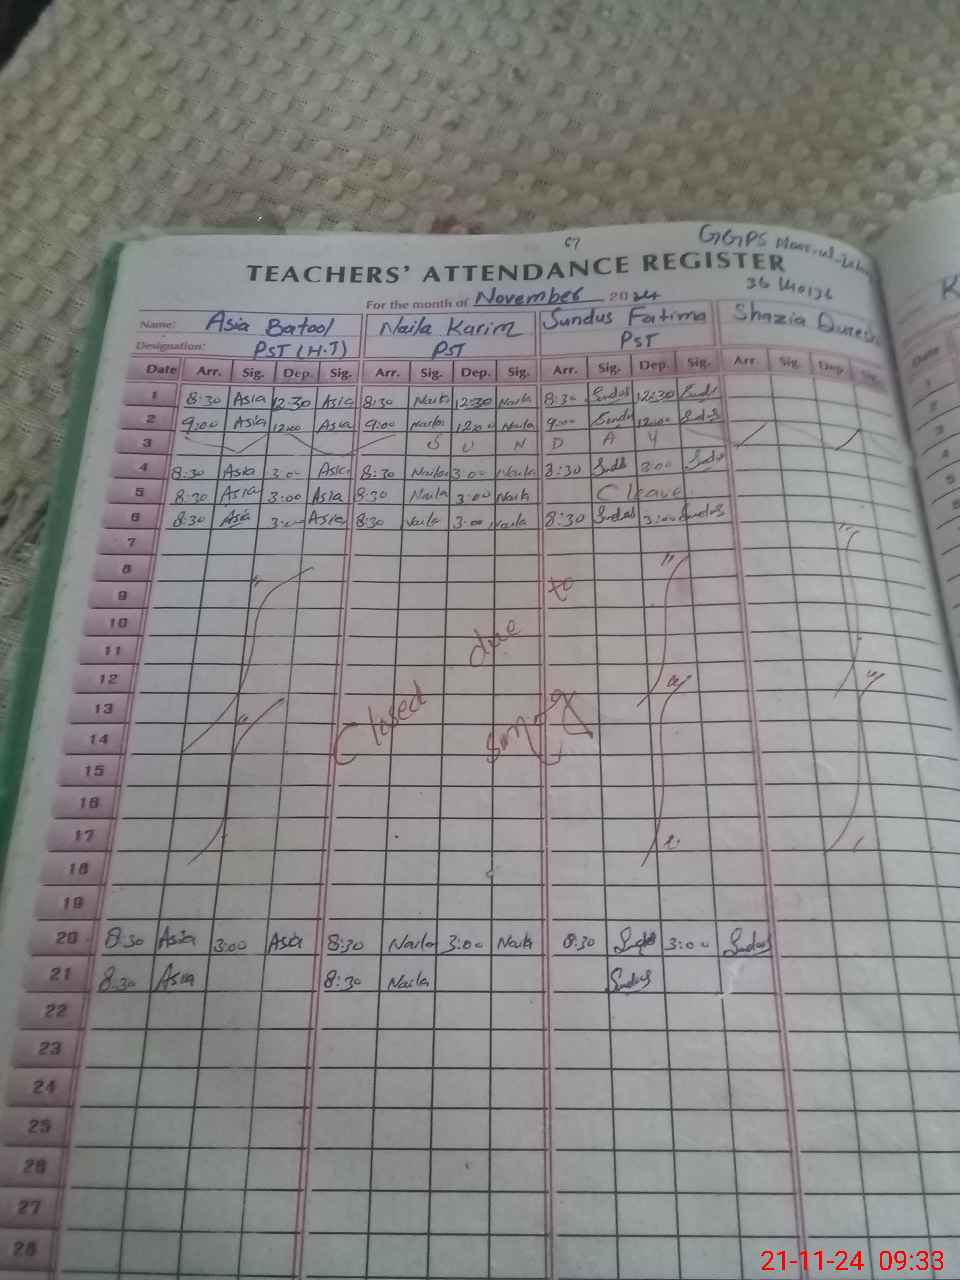 67
GGPS Noor-ul-
TEACHERS' ATTENDANCE REGISTER
For the month of November 2024
Name: Asia Batool Naila Karim Sundus Fatima Shazia
Designation: PST (H.T) PST PST
Date Arr. Sig. Dep. Sig. Arr. Sig. Dep. Sig. Arr. Sig. Dep. Sig. Arr. Sig. Dep. Sig.
1 8:30 Asia 12:30 Asia 8:30 Naila 12:30 Naila 8:30 Sundus 12:30 Sundus
2 9:00 Asia 12:00 Asia 9:00 Naila 12:00 Naila 9:00 Sundus 12:00 Sundus
3 S U N D A Y
4 8:30 Asia 3:00 Asia 8:30 Naila 3:00 Naila 8:30 Sundus 3:00 Sundus
5 8:30 Asia 3:00 Asia 8:30 Naila 3:00 Naila C leave
6 8:30 Asia 3:00 Asia 8:30 Naila 3:00 Naila 8:30 Sundus 3:00 Sundus
7
8
9
10
11
12
13
14
Closed due to smog
15
16
17
18
19
20 8:30 Asia 3:00 Asia 8:30 Naila 3:00 Naila 8:30 Sundus 3:00 Sundus
21 8:30 Asia 8:30 Naila Sundus
22
23
24
25
26
27
28
21-11-24 09:33